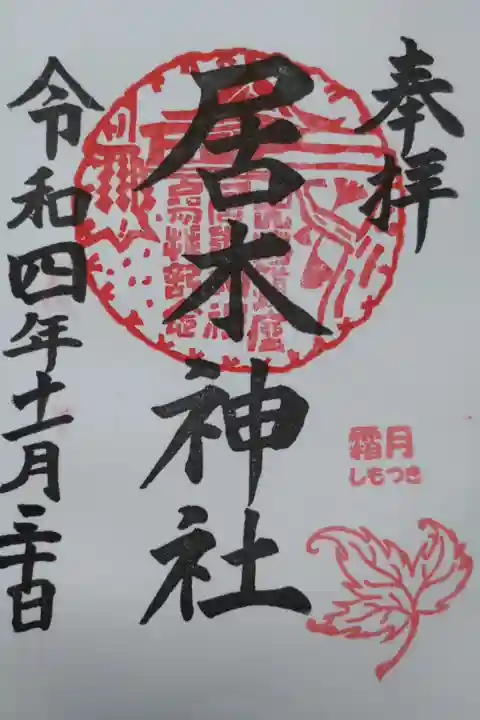 奉拝
居木神社
令和四年十一月三十日
霜月
しもつき